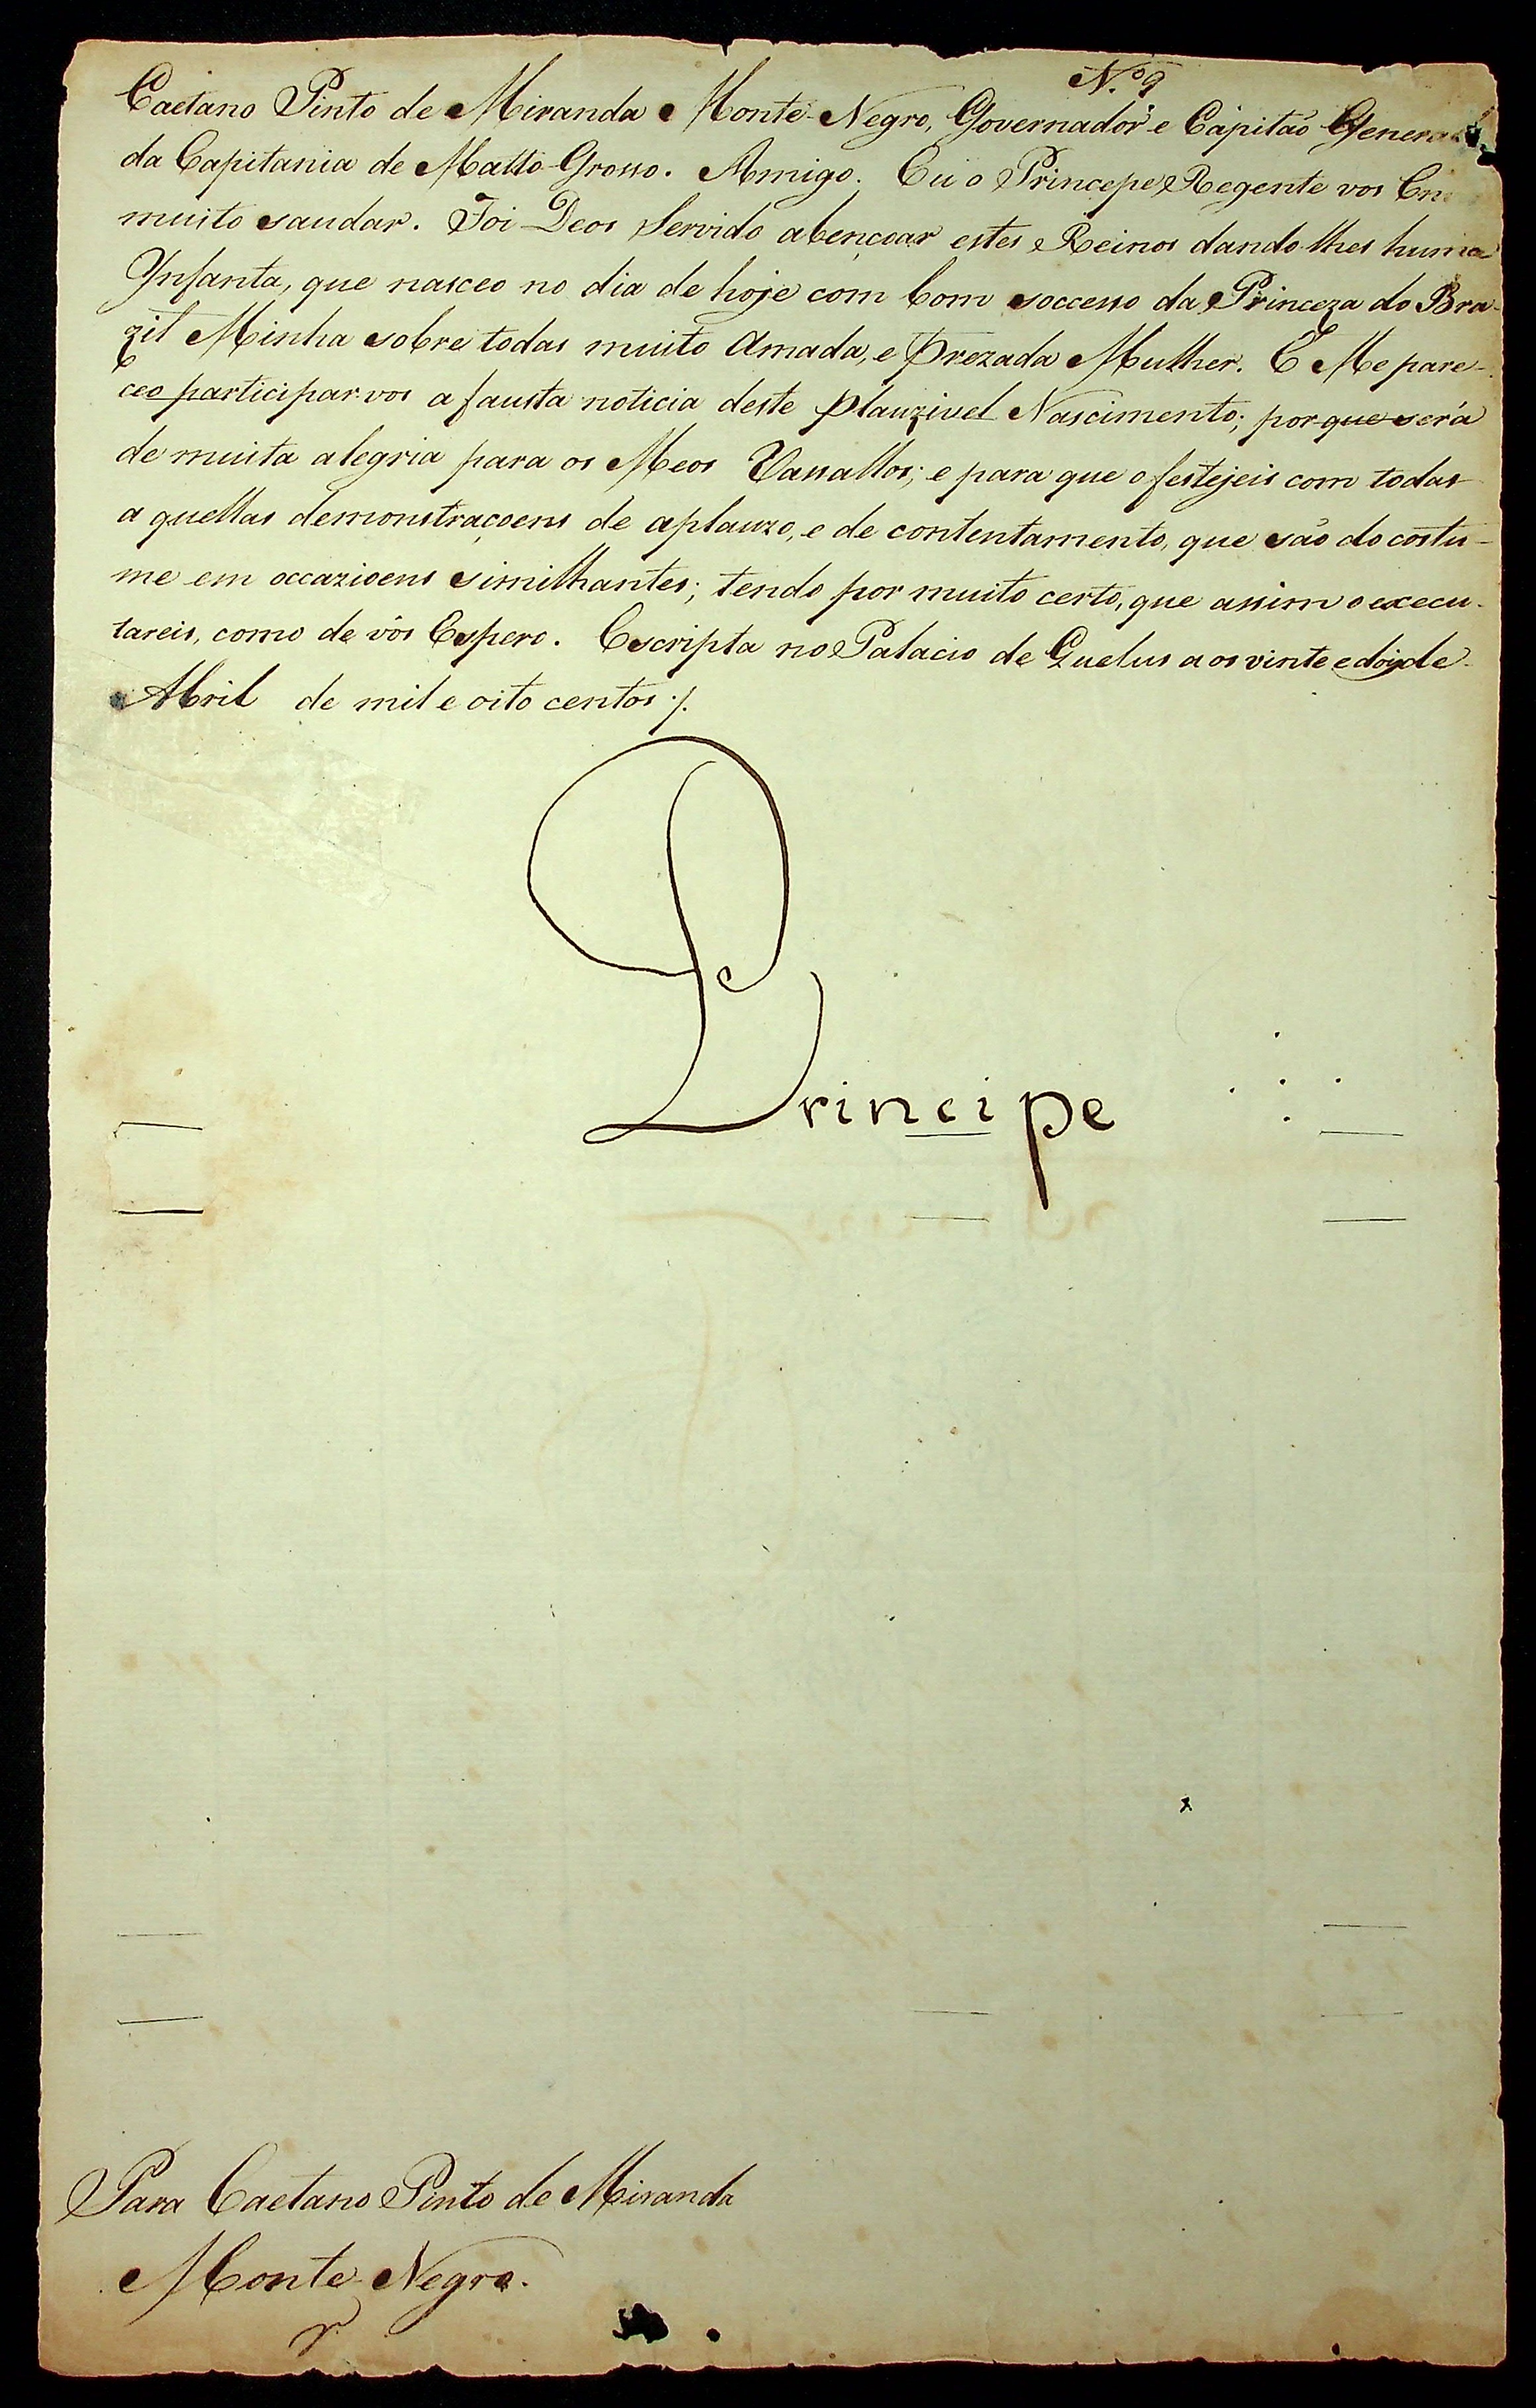 N.º 9
Caetano Pinto de Miranda Monte-Negro, Governador e Capitaõ General
da Capitania de Matto-Grosso. Amigo. Eu o Principe Regente vos
muito saudar. Foi Deos Servido abençoar estes Reinos dando-lhes huma
Infanta, que nasceo no dia de hoje com bom soccesso da Princeza do Bra-
zil Minha sobre todas muito Amada, e Prezada Mulher. E Me pare-
ceo participar-vos a fausta noticia deste plauzivel Nascimento; porque será
de muita alegria para os Meos Vassallos; e para que o festejeis com todas
aquellas demonstraçoens de aplauzo, e de contentamento, que são do costu-
me em occazioens similhantes; tendo por muito certo, que assim o execu-
tareis, como de vós Espero. Escripta no Palacio de Quelus aos vinte e dois de
Abril de mil e oito centos ./.
Principe
Para Caetano Pinto de Miranda
Monte-Negro.